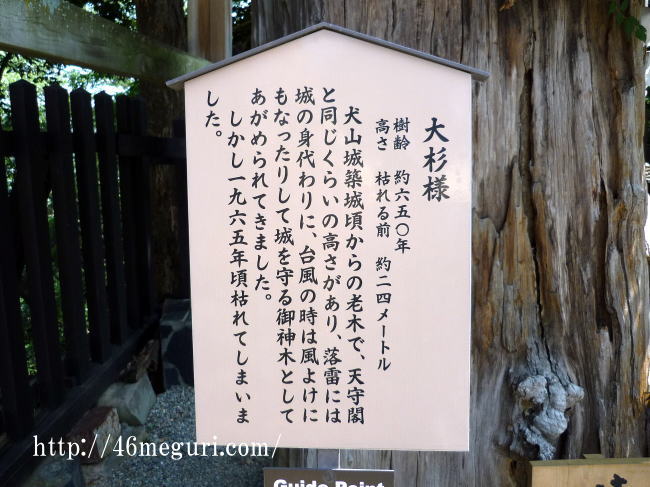 大杉様
樹齢　約六五〇年
高さ　枯れる前　約二四メートル
犬山城築城頃からの老木で、天守閣
と同じくらいの高さがあり、落雷には
城の身代わりに、台風の時は風よけに
もなったりして城を守る御神木として
あがめられてきました。
しかし一九六五年頃枯れてしまいま
した。
http://46meguri.com/
Guide Point